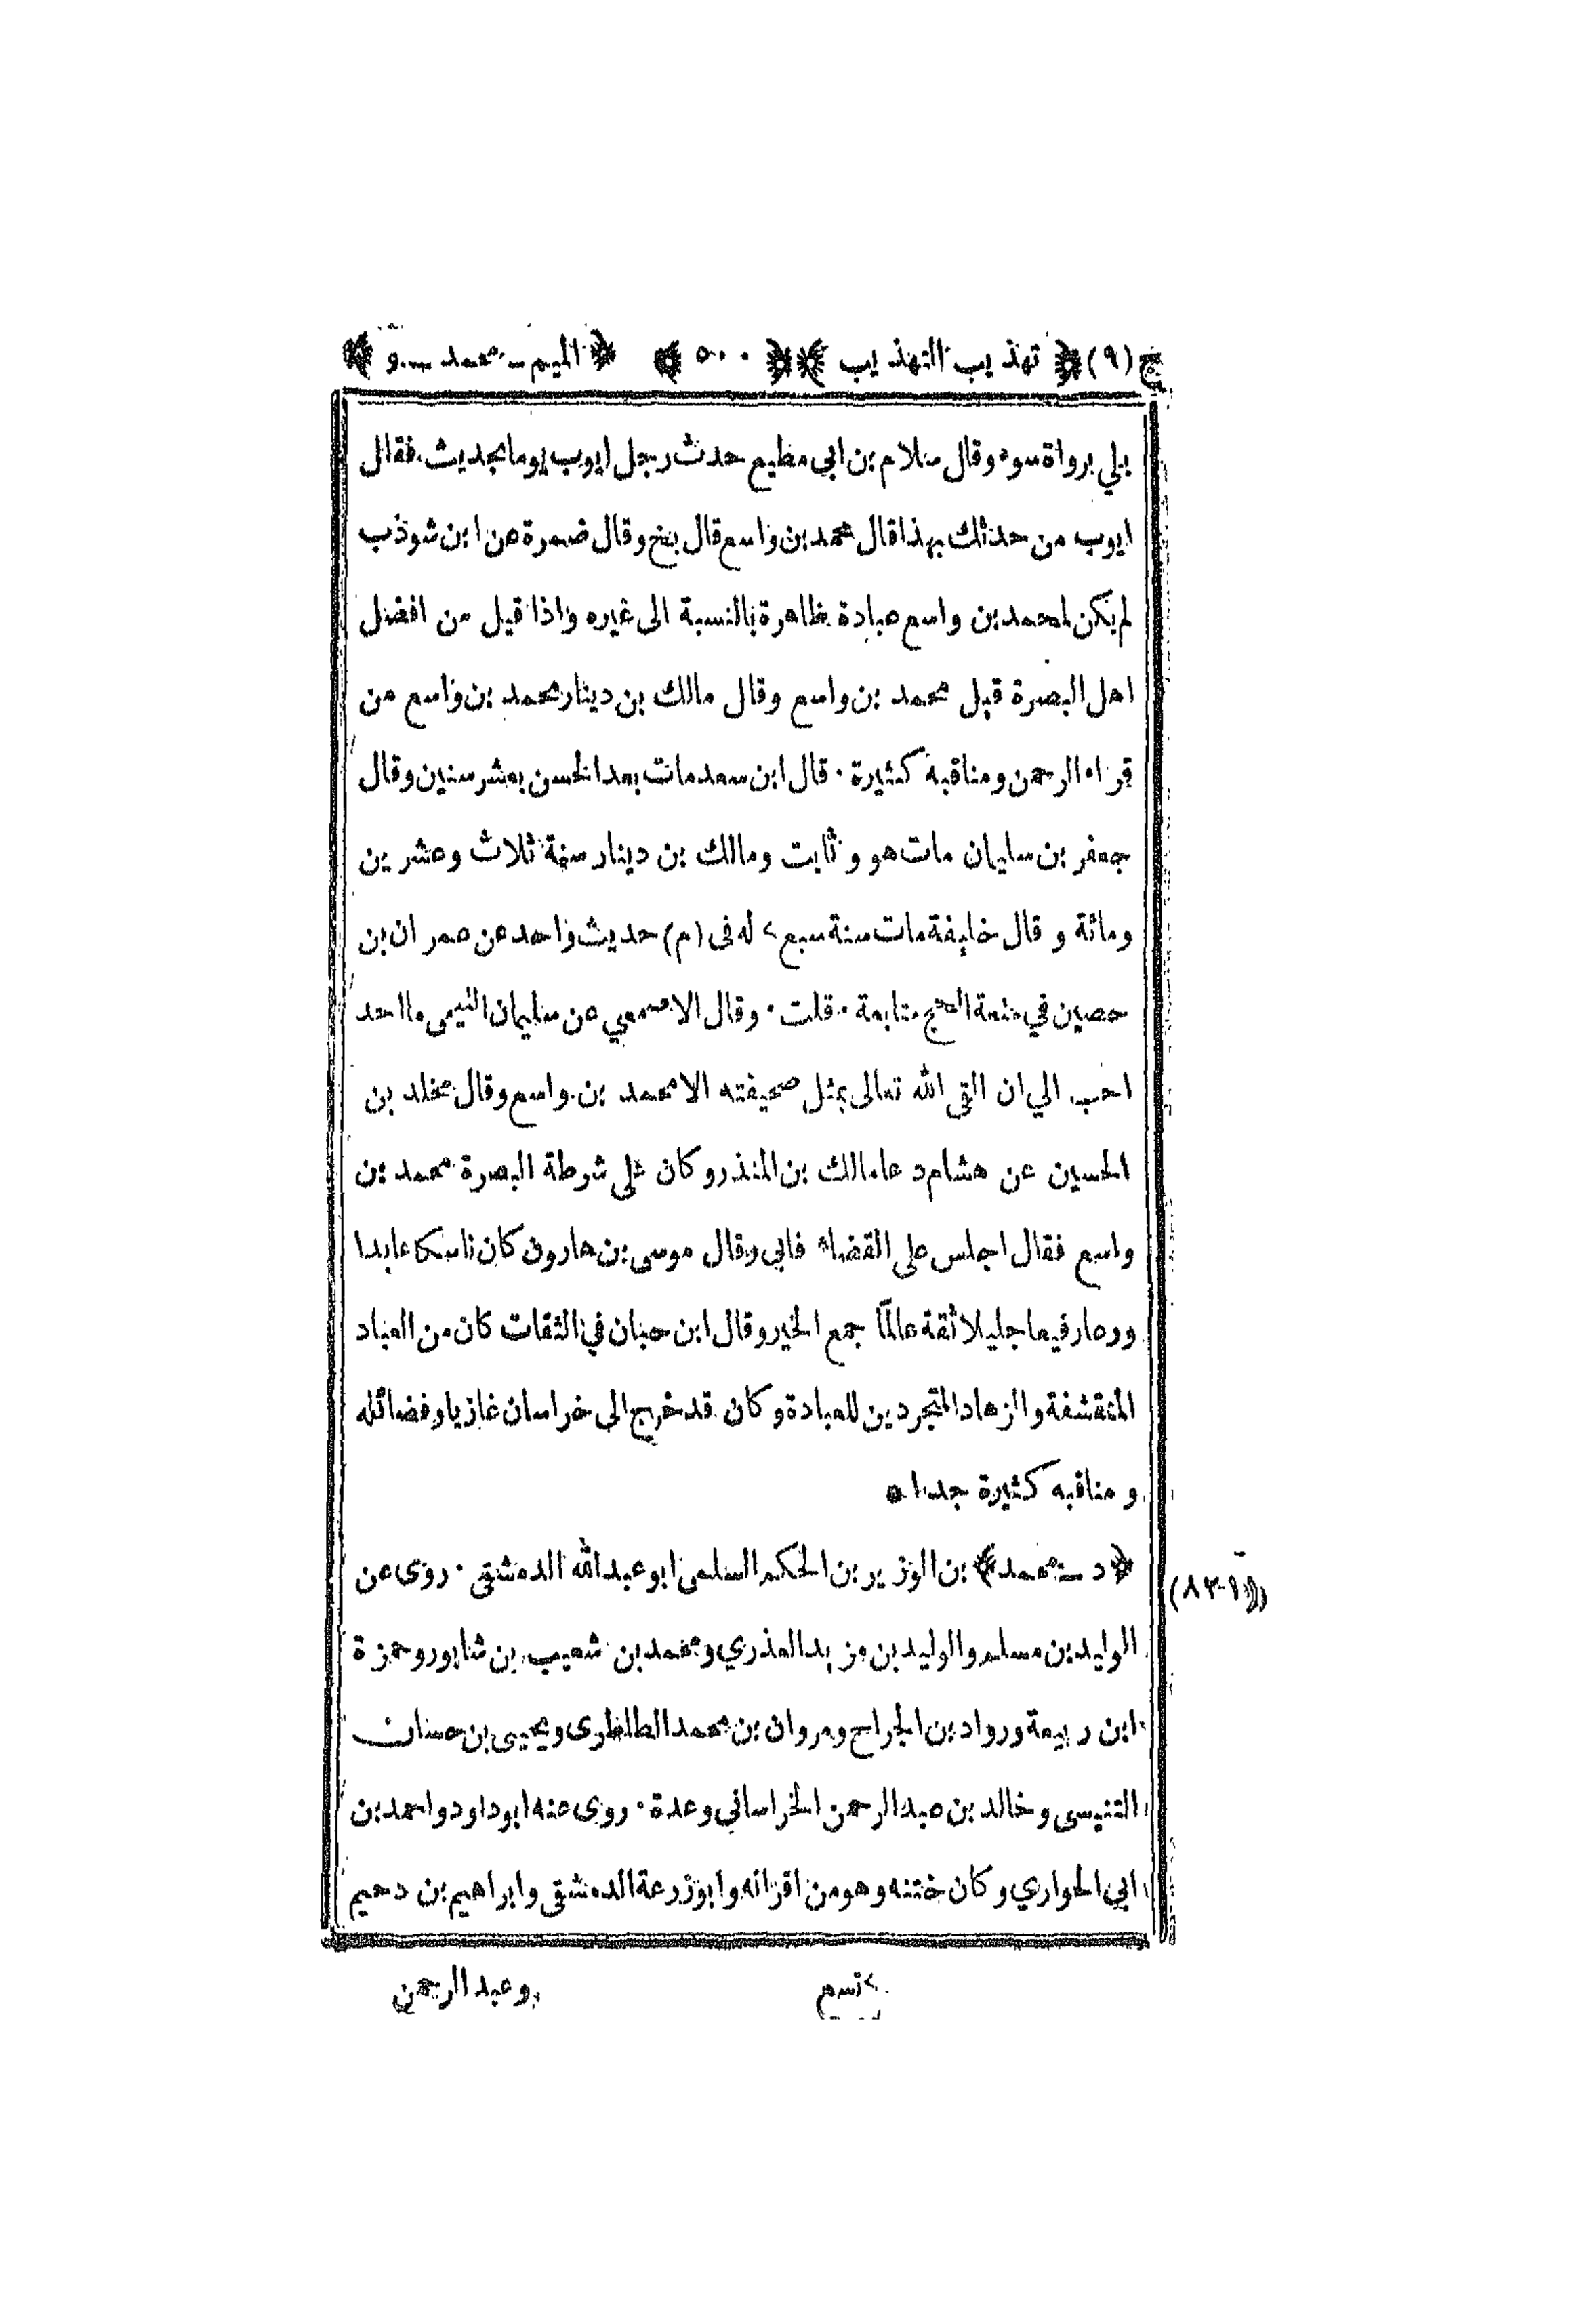 ج (٩) ﴿ تهذيب التهذيب ﴾ ﴿ ٥٠٠ ﴾ ﴿ الميم - محمد - و ﴾
بلي برواة سوء وقال سلام بن ابي مطيع حدث رجل ايوب يوما بحديث فقال
ايوب من حدثك بهذا قال محمد بن واسع قال بخ وقال ضمرة عن ابن شوذب
لم يكن لمحمد بن واسع عبادة ظاهرة بالنسبة الى غيره واذا قيل من افضل
اهل البصرة قيل محمد بن واسع وقال مالك بن دينار محمد بن واسع من
قراء الرحمن ومناقبه كثيرة . قال ابن سعد مات بعد الحسن بعشر سنين وقال
جعفر بن سليمان مات هو و ثابت ومالك بن دينار سنة ثلاث وعشرين
ومائة و قال خليفة مات سنة سبع > له فى (م) حديث واحد عن عمران بن
حصين في متعة الحج متابعة . قلت . وقال الاصمعي عن سليمان التيمى ما احد
احب الي ان القى الله تعالى بمثل صحيفته الا محمد بن واسع وقال مخلد بن
الحسين عن هشام دعا مالك بن المنذر وكان على شرطة البصرة محمد بن
واسع فقال اجلس على القضاء فابى وقال موسى بن هارون كان ناسكا عابدا
ورعا رفيعا جليلا ثقة عالمًا جمع الخير وقال ابن حبان في الثقات كان من العباد
المتقشفة والزهاد المتجردين للعبادة وكان قد خرج الى خراسان غازيا وفضائله
و مناقبه كثيرة جدا ٥
﴿ د - محمد ﴾ بن الوزير بن الحكم السلمى ابو عبد الله الدمشقى . روى عن
الوليد بن مسلم والوليد بن مزيد العذري ومحمد بن شعيب بن شابور وحمزة
ابن ربيعة ورواد بن الجراح ومروان بن محمد الطاطرى ويحيى بن حسان
التنيسى وخالد بن عبد الرحمن الخراساني وعدة . روى عنه ابو داود واحمد بن
ابي الحواري وكان ختنه وهو من اقرانه وابو زرعة الدمشقى وابراهيم بن دحيم
> تسع
وعبد الرحمن